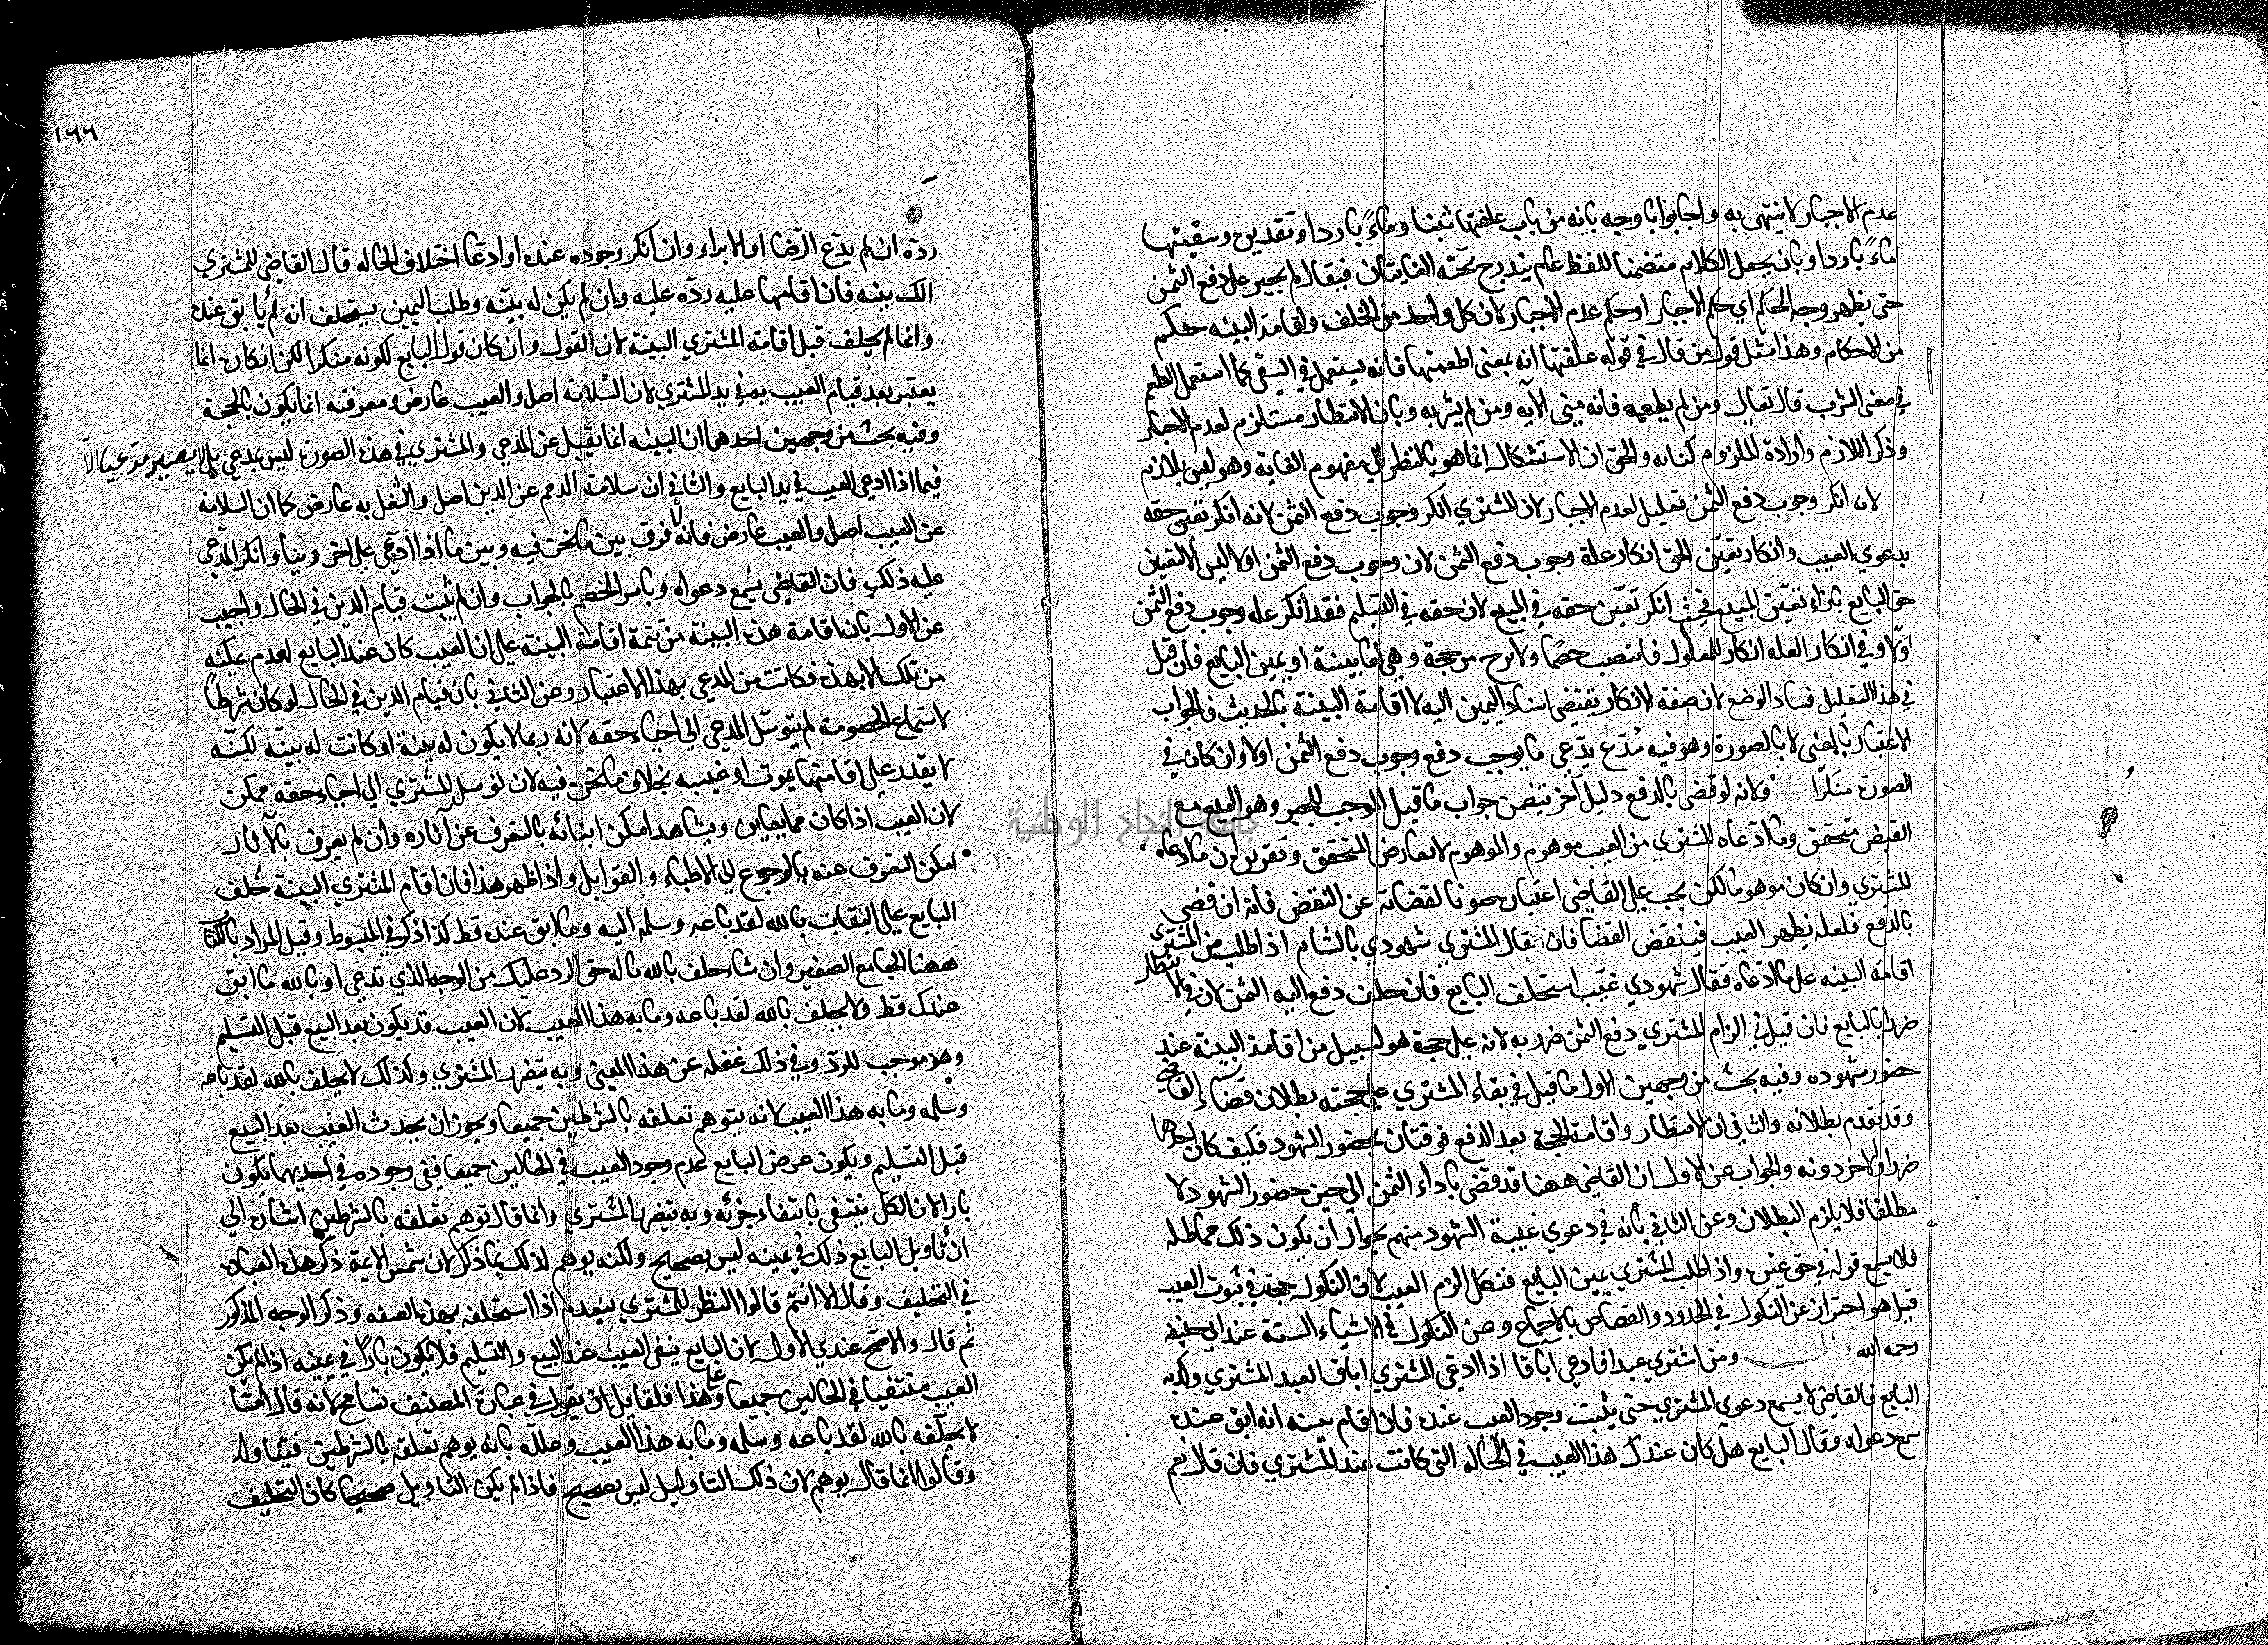 عدم الاجبار لا ينتهى به واجابوا باوجه بانه من باب علفتها تبنا وماءً باردا وتقديره وسقيتها
ماءً باردا وبان يجعل الكلام متضمنا للفظ عام يندرج تحته الغايتان فيقال لم يجبر على دفع الثمن
حتى يظهر وجه الحكم اي حكم الاجبار او حكم عدم الاجبار لان كل واحد من الحلف واقامة البينه حكم
من الاحكام وهذا مثل قول من قال في قوله علفتها انه بمعنى اطعمتها فانه يستعمل في السقى كما استعمل الطعم
في معنى الشرب قال تعالى ومن لم يطعمه فانه منى الآيه ومن لم يشربه وبان الانتظار مستلزم لعدم الاجبار
وذكر اللازم وارادة الملزوم كنايه والحق ان الاستشكال انما هو بالنظر الى مفهوم الغاية وهو ليس بلازم
لانه انكر وجوب دفع الثمن تعليل لعدم الاجبار لان المشتري انكر وجوب دفع الثمن لانه انكر تعين حقه
بدعوى العيب وانكار تعيّن الحق انكار علة وجوب دفع الثمن لان وجوب دفع الثمن اولا ليس الا لتعين
حق البايع بازاء تعيّن المبيع فحيث انكر تعيّن حقه في المبيع لان حقه في السليم فقد انكر عله وجوب دفع الثمن
اوّلا وفي انكار العله انكار المعلول فانتصب خصما ولا برح من حجة وهي اما بينة او يمين البايع فان قيل
في هذا التعليل فساد الوضع لان صفة الانكار يقتضي اسناد اليمين اليه لا اقامة البينة بالحديث فالجواب
الاعتبار بالمعنى لا بالصورة وهو فيه مُدّع يدّعي ما يوجب دفع وجوب دفع الثمن اولا وان كان في
الصورة منكرًا ولانه لو قضى بالدفع دليل آخر يتضمن جواب ما قيل الموجب للجبر وهو البيع مع
القبض متحقق وما ادعاه المشتري من العيب موهوم والموهوم لا يعارض المتحقق وتقريره ان ما ادعاه
المشتري وان كان موهوما لكن يجب على القاضي اعتباره صونا لقضائه عن النقض فانه ان قضى
بالدفع فلعله يظهر العيب فينقض القضا فان قال المشتري شهودي بالشام اذا طلب من المشترى
اقامة البينه على ما ادّعاه فقال شهودي غيّب استحلف البايع فان حلف دفع اليه الثمن لان في الانتظار
ضررا بالبايع فان قيل في الزام المشتري دفع الثمن ضرر به لانه على حجة هو لسبيل من اقامة البينة عند
حضور شهوده وفيه بحث من وجهين الاول ما قيل في بقاء المشتري على حجته بطلان قضاء القاضي
وقد تقدم بطلانه والثاني ان الانتظار واقامة الحجة بعد الدفع موقتان بحضور الشهود فكيف كان احدهما
ضررا والاخر دونه والجواب عن الاول ان القاضي ههنا قد قضى باداء الثمن الى حين حضور الشهود لا
مطلقا فلا يلزم البطلان وعن الثاني بانه في دعوي غيبة الشهود متهم بجواز ان يكون ذلك مماطله
فلا يسمع قوله في حق غيره واذا طلب المشتري يمين البايع فنكل الزم العيب لان النكول حجة في ثبوت العيب
قيل هو احتراز عن النكول في الحدود والقصاص بالاجماع وعن النكول في الاشياء الستة عند ابي حنيفه
رحمه الله قال ومن اشتري عبدا فادعى اباقا اذا ادعى المشتري اباق العبد المشتري وكذبه
البايع فالقاضي لا يسمع دعوى المشتري حتى يثبت وجود العيب عنده فان اقام بينه انه ابق عنده
سمع دعواه وقال البايع هل كان عندك هذا العيب في الحاله التي كانت عند المشتري فان قال نعم
١٦٦
ردّه ان لم يدّع الرّضا او الابراء وان انكر وجوده عنده او ادعا اختلاف الحاله قال القاضي للمشتري
الك بينه فان اقامها عليه ردّه عليه وان لم يكن له بيّنه وطلب اليمين يستحلف انه لم يابق عنده
وانما لم يحلف قبل اقامة المشتري البينة لان القول وان كان قول البايع لكونه منكرا لكن انكاره انما
يعتبر بعد قيام العيب به في يد المشتري لان السّلامة اصل والعيب عارض ومعرفته انما يكون بالحجة
وفيه بحث من وجهين احدهما ان البينه انما يقبل عن المدعي والمشتري في هذه الصورة ليس بمدعي بل لا يصير مدعيا الّا
فيما اذا ادعى العيب في يد البايع والثاني ان سلامة الذمم عن الدين اصل والشغل به عارض كما ان السلامه
عن العيب اصل والعيب عارض فانه لا فرق بين ما نحن فيه وبين ما اذا ادّعي على اخر دينا وانكر المدّعى
عليه ذلك فان القاضي يسمع دعواه ويامر الخصم بالجواب وان لم يثبت قيام الدين في الحال واجيب
عن الاول بان اقامة هذه البينة من تتمة اقامة البينة على ان العيب كان عند البايع لعدم تمكنه
من تلك الا بهذه فكانت من المدعي بهذا الاعتبار وعن الثاني بان قيام الدين في الحال لو كان شرطًا
لاستماع الخصومة لم يتوسّل المدعى الى احياء حقه لانه ربما لا يكون له بينة او كانت له بيّنه لكنّه
لا يقدر على اقامتها بموت او غيبه بخلاف ما نحن فيه لان توسل المشتري الى احياء حقه ممكن
لان العيب اذا كان مما يعاين ويشاهد امكن اثباته بالتعرف عن آثاره وان لم يعرف بالآثار
امكن التعرف عنه بالرجوع الى الاطباء والقوابل واذا ظهر هذا فان اقام المشتري البينة حُلف
البايع على البتات بالله لقد باعه وسلمه اليه وما ابق عنده قط كذا ذكر في المبسوط وقيل المراد بالكتاب
ههنا الجامع الصغير وان شاء حلف بالله ما له حق الرد عليك من الوجه الذي تدعي او بالله ما ابق
عندك قط ولا يحلف بالله لقد باعه وما به هذا العيب لان العيب قد يكون بعد البيع قبل التسليم
وهو موجب للردّ وفي ذلك غفله عن هذا المعنى وبه يتضرر المشتري ولذلك لا يحلف بالله لقد باعه
وسلمه وما به هذا العيب لانه يتوهم تعلقه بالشرطين جميعا ويجوز ان يحدث العيب بعد البيع
قبل التسليم ويكون غرض البايع عدم وجود العيب في الحالين جميعا ففي وجوده في احديهما يكون
بارا لان الكل ينتفى بانتفاء جزئه وبه يتضرر المشتري وانما قال توهم تعلقه بالشرطين اشاره الى
ان تاويل البايع ذلك في يمينه ليس بصحيح ولكنه يوهم لذلك بما ذكر لان شمس الايمة ذكر هذه العباره
في التحليف وقال الا انهم قالوا النظر للمشتري ينعدم اذا استحلفه بهذه الصفه وذكر الوجه المذكور
ثم قال والاصح عندي الاول لان البايع ينفى العيب عند البيع والتسليم فلا يكون بارًا في يمينه اذا لم يكن
العيب منتفيا في الحالين جميعا وعلى هذا فلقايل ان يقول في عبارة المصنف تسامح لانه قال امّا
لا يحلفه بالله لقد باعه وسلمه وما به هذا العيب وعلله بانه يوهم تعلقه بالشرطين فيتاوله
وقالوا انما قال يوهم لان ذلك التاويل ليس بصحيح فاذا لم يكن التاويل صحيحا كان التحليف